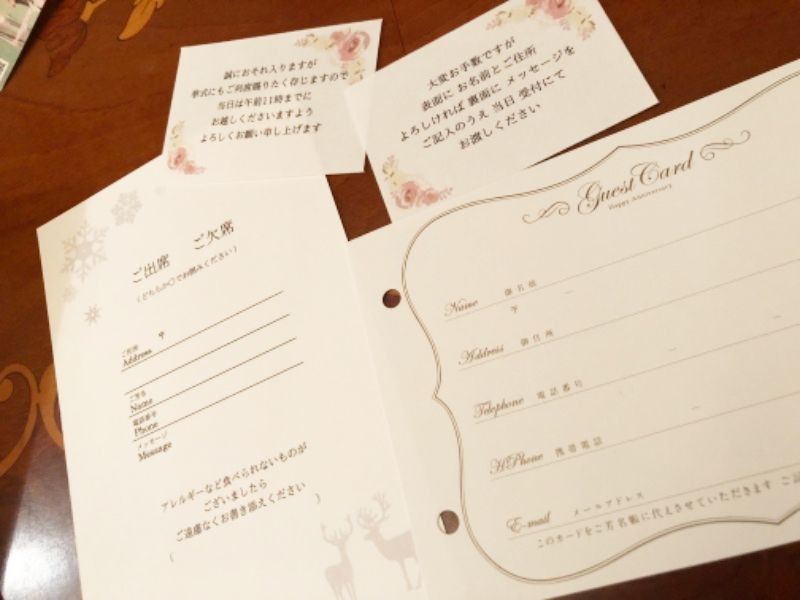 誠におそれ入りますが
挙式にもご列席賜りたく存じますので
当日は午前11時までに
お越しくださいますよう
よろしくお願い申し上げます
大変お手数ですが
表面に お名前とご住所
よろしければ 裏面に メッセージを
ご記入のうえ 当日 受付にて
お渡しください
ご出席 ご欠席
(どちらか○でお囲みください)
ご住所 〒
Address
ご芳名
Name
電話番号
Phone
メッセージ
Message
アレルギーなど食べられないものが
ございましたら
ご遠慮なくお書き添えください
( )
Guest Card
Happy Anniversary
Name 御名前
〒
Address 御住所
Telephone 電話番号
H/Phone 携帯電話
E-mail メールアドレス
このカードをご芳名帳に代えさせていただきます ご記